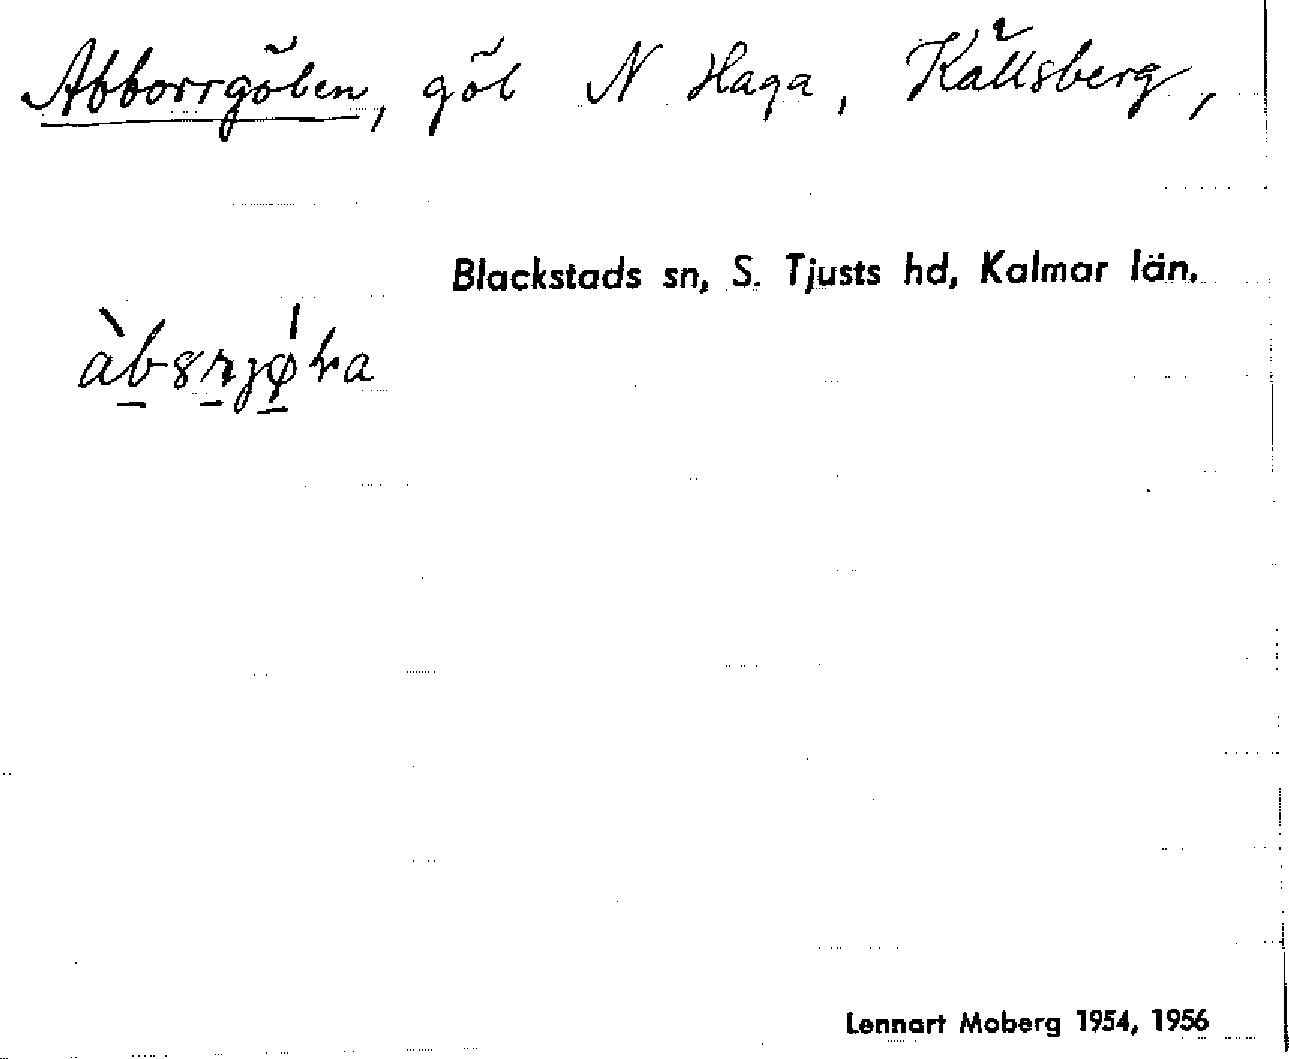 Abborrgölen, göl N Haga, Källsberg,
Blackstads sn, S. Tjusts hd, Kalmar län.
Lennart Moberg 1954, 1956